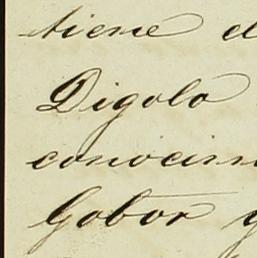 tiene d
Digolo
conocim
Gobor y